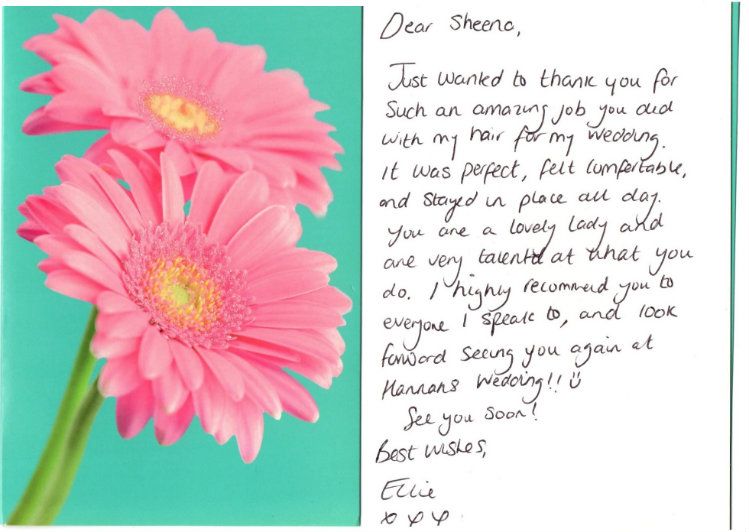 Dear Sheena,
Just wanted to thank you for
Such an amazing job you did
with my hair for my wedding.
It was perfect, felt comfortable,
and stayed in place all day.
You are a lovely lady and
are very talented at what you
do. I highly recommend you to
everyone I speak to, and look
forward seeing you again at
Hannahs Wedding!! ☺
See you soon!
Best wishes,
Ellie
x x x